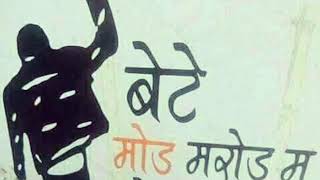 बेटे
मोड मरोड म